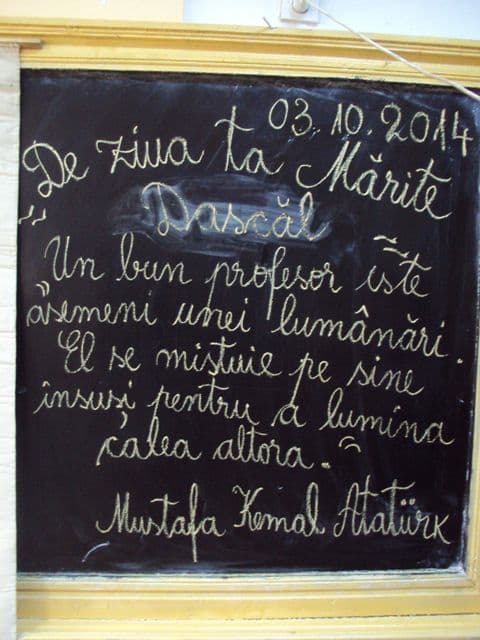 03.10.2014
De ziua ta Mărite
Dascăl
"Un bun profesor iste
asemeni unei lumânări.
El se mistuie pe sine
însuși pentru a lumina
calea altora."
Mustafa Kemal Atatürk